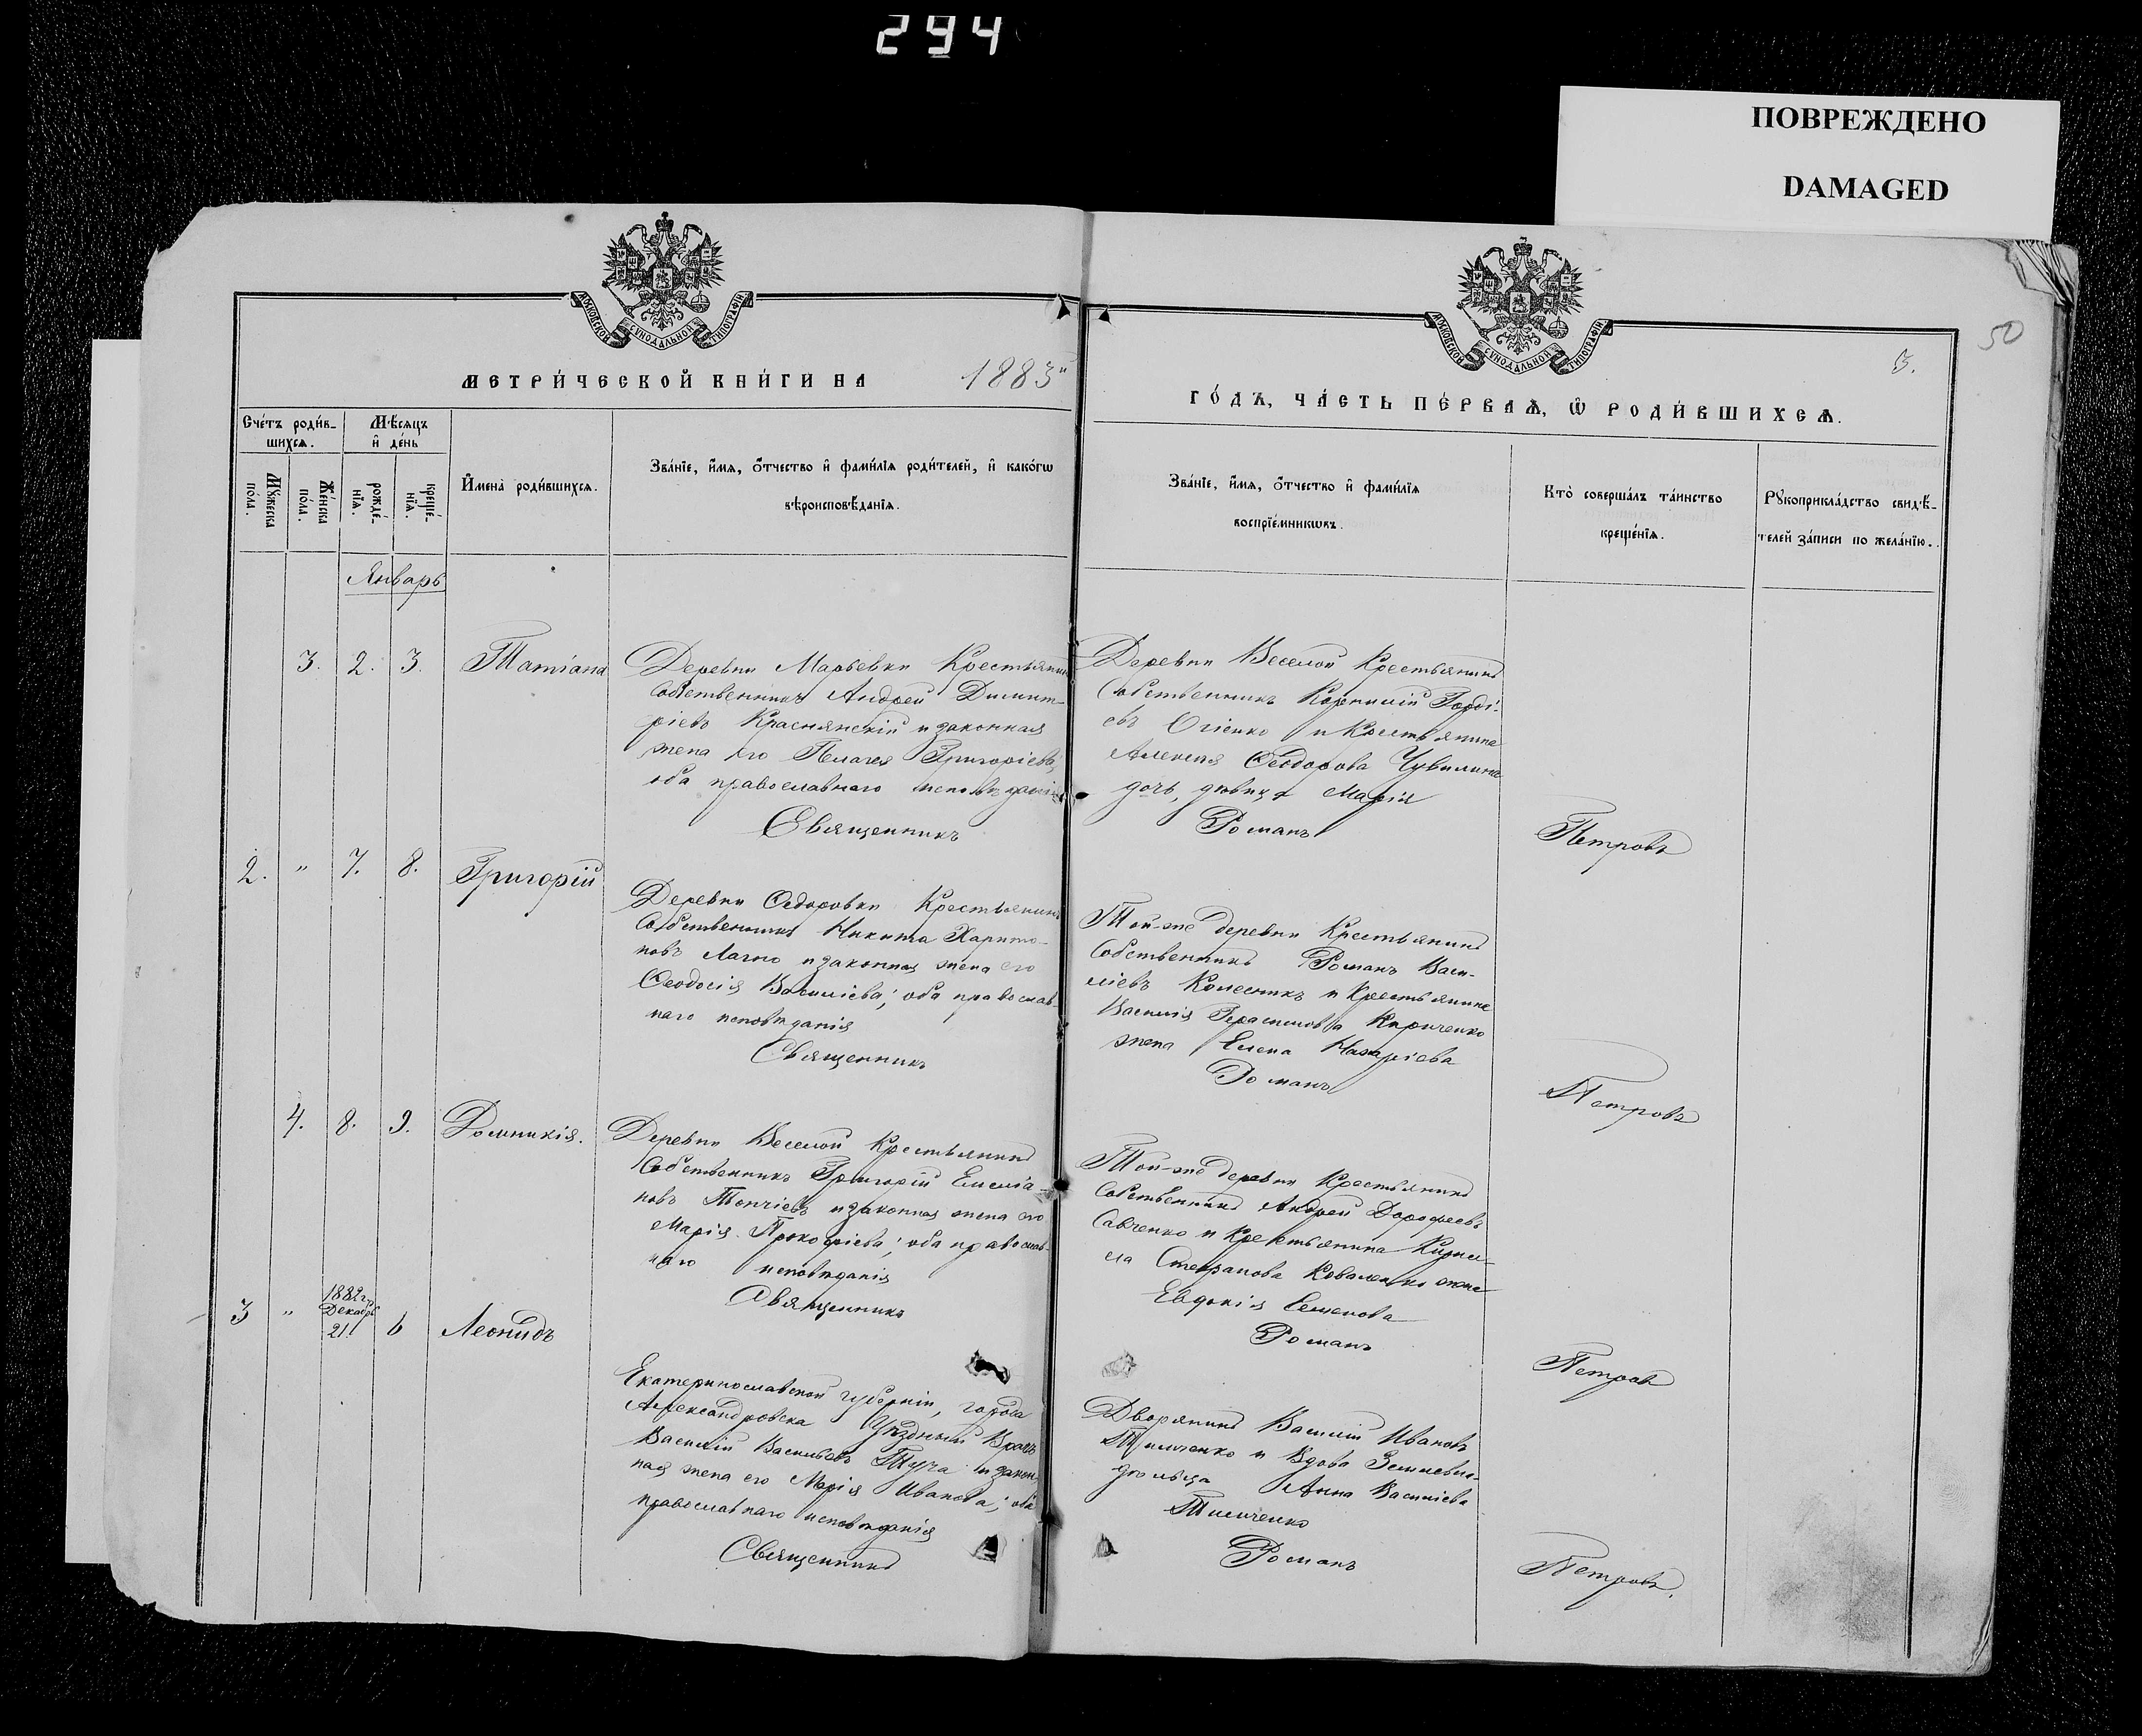 294
ПОВРЕЖДЕНО
DAMAGED
МОСКОВСКОЙ СѴНОДАЛЬНОЙ ТИПОГРАФІИ
МОСКОВСКОЙ СѴНОДАЛЬНОЙ ТИПОГРАФІИ
50
3.
МЕТРИ́ЧЕСКОЙ КНИ́ГИ НА 1883й
ГО́ДЪ, ЧА́СТЬ ПЕ́РВАѦ, Ѽ РОДИ́ВШИХСѦ.
Сче́тъ роди́в-
шихсѧ.
Мѣ́сѧцъ
и҆ де́нь
Мꙋ́жеска
по́ла.
Же́нска
по́ла.
рожде́-
нїѧ.
креще́-
нїѧ.
И҆мена̀ роди́вшихсѧ.
Зва́нїе, и҆́мѧ, ѻ҆́тчество и҆ фами́лїѧ роди́телей, и҆ како́гѡ
вѣроисповѣ́данїѧ.
Зва́нїе, и҆́мѧ, ѻ҆́тчество и҆ фами́лїѧ
воспрїе́мникѡвъ.
Кто̀ соверша́лъ та́инство
креще́нїѧ.
Рꙋкоприкла́дство свидѣ́-
телей за́писи по жела́нїю.
Январь
3. 2. 3. Татіана
Деревни Марьевки Крестьянинъ
Собственникъ Андрей Димит-
ріевъ Краснянскій и законная
жена его Пелагея Григоріева;
оба православнаго исповѣданія
Священникъ
Деревни Веселой Крестьянинъ
Собственникъ Корнилій Горді-
евъ Огіенко и Крестьянина
Алексея Ѳеодорова Чувилина
дочь, дѣвица Марія
Романъ
Петровъ
2. " 7. 8. Григорій
Деревни Ѳедоровки Крестьянинъ
Собственникъ Никита Харито-
новъ Лагно и законная жена его
Ѳеодосія Василіева; оба православ-
наго исповѣданія
Священникъ
Той-же деревни Крестьянинъ
Собственникъ Романъ Васи-
ліевъ Колесникъ и Крестьянина
Василія Герасимова Кириченко
жена Елена Назаріева
Романъ
Петровъ
4. 8. 9. Домникія.
Деревни Веселой Крестьянинъ
Собственникъ Григорій Емеліа-
новъ Топчіевъ и законная жена его
Марія Прокофіева; оба православ-
наго исповѣданія
Священникъ
Той-же деревни Крестьянинъ
Собственникъ Андрей Дорофеевъ
Савченко и Крестьянина Кирил-
ла Стефанова Коваленко жена
Евдокія Семенова
Романъ
Петровъ
3 " 1882 г.
Декабрь
21. 6 Леонидъ
Екатеринославской губерніи, города
Александровска Уѣздный Врачъ
Василій Васильевъ Туча и закон-
ная жена его Марія Иванова; оба
православнаго исповѣданія
Священникъ
Дворянинъ Василій Ивановъ
Тимченко и Вдова Землевла-
дѣльца Анна Василіева
Тимченко
Романъ
Петровъ.